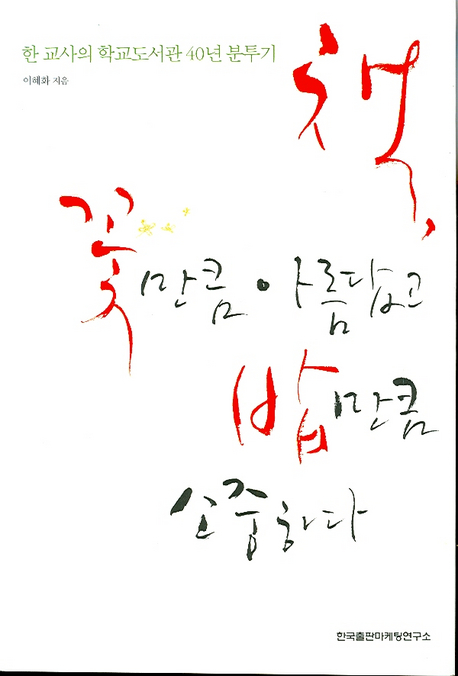 한 교사의 학교도서관 40년 분투기
이혜화 지음
책,
꽃만큼 아름답고
밥만큼
소중하다
한국출판마케팅연구소